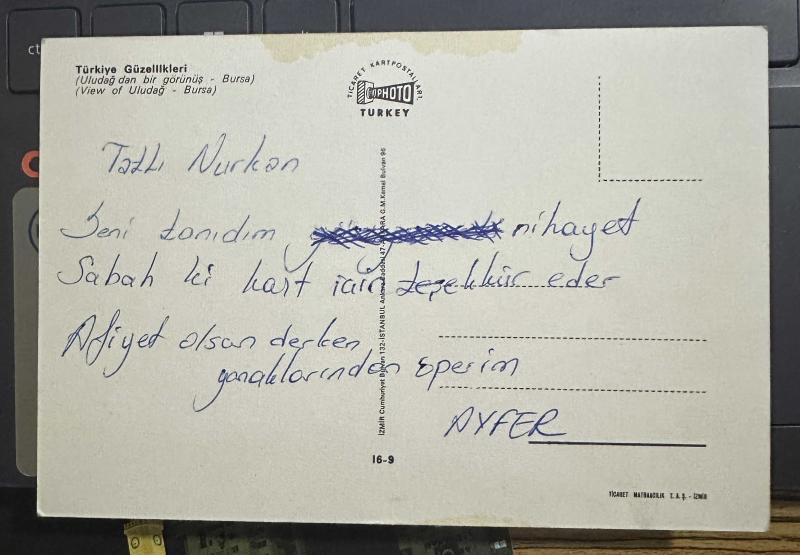 Türkiye Güzellikleri
(Uludağ dan bir görünüş - Bursa)
(View of Uludağ - Bursa)
TİCARET KARTPOSTALLARI
PHOTO
TURKEY
Tatlı Nurkan
Seni tanıdım nihayet
Sabah ki kart için teşekkür eder
Afiyet olsun derken
yanaklarından öperim
AYFER
İZMİR Cumhuriyet Bulvarı 132-İSTANBUL Ankara Caddesi 47- G.M.Kemal Bulvarı 96
16-9
TİCARET MATBAACILIK T.A.Ş. - İZMİR
ct